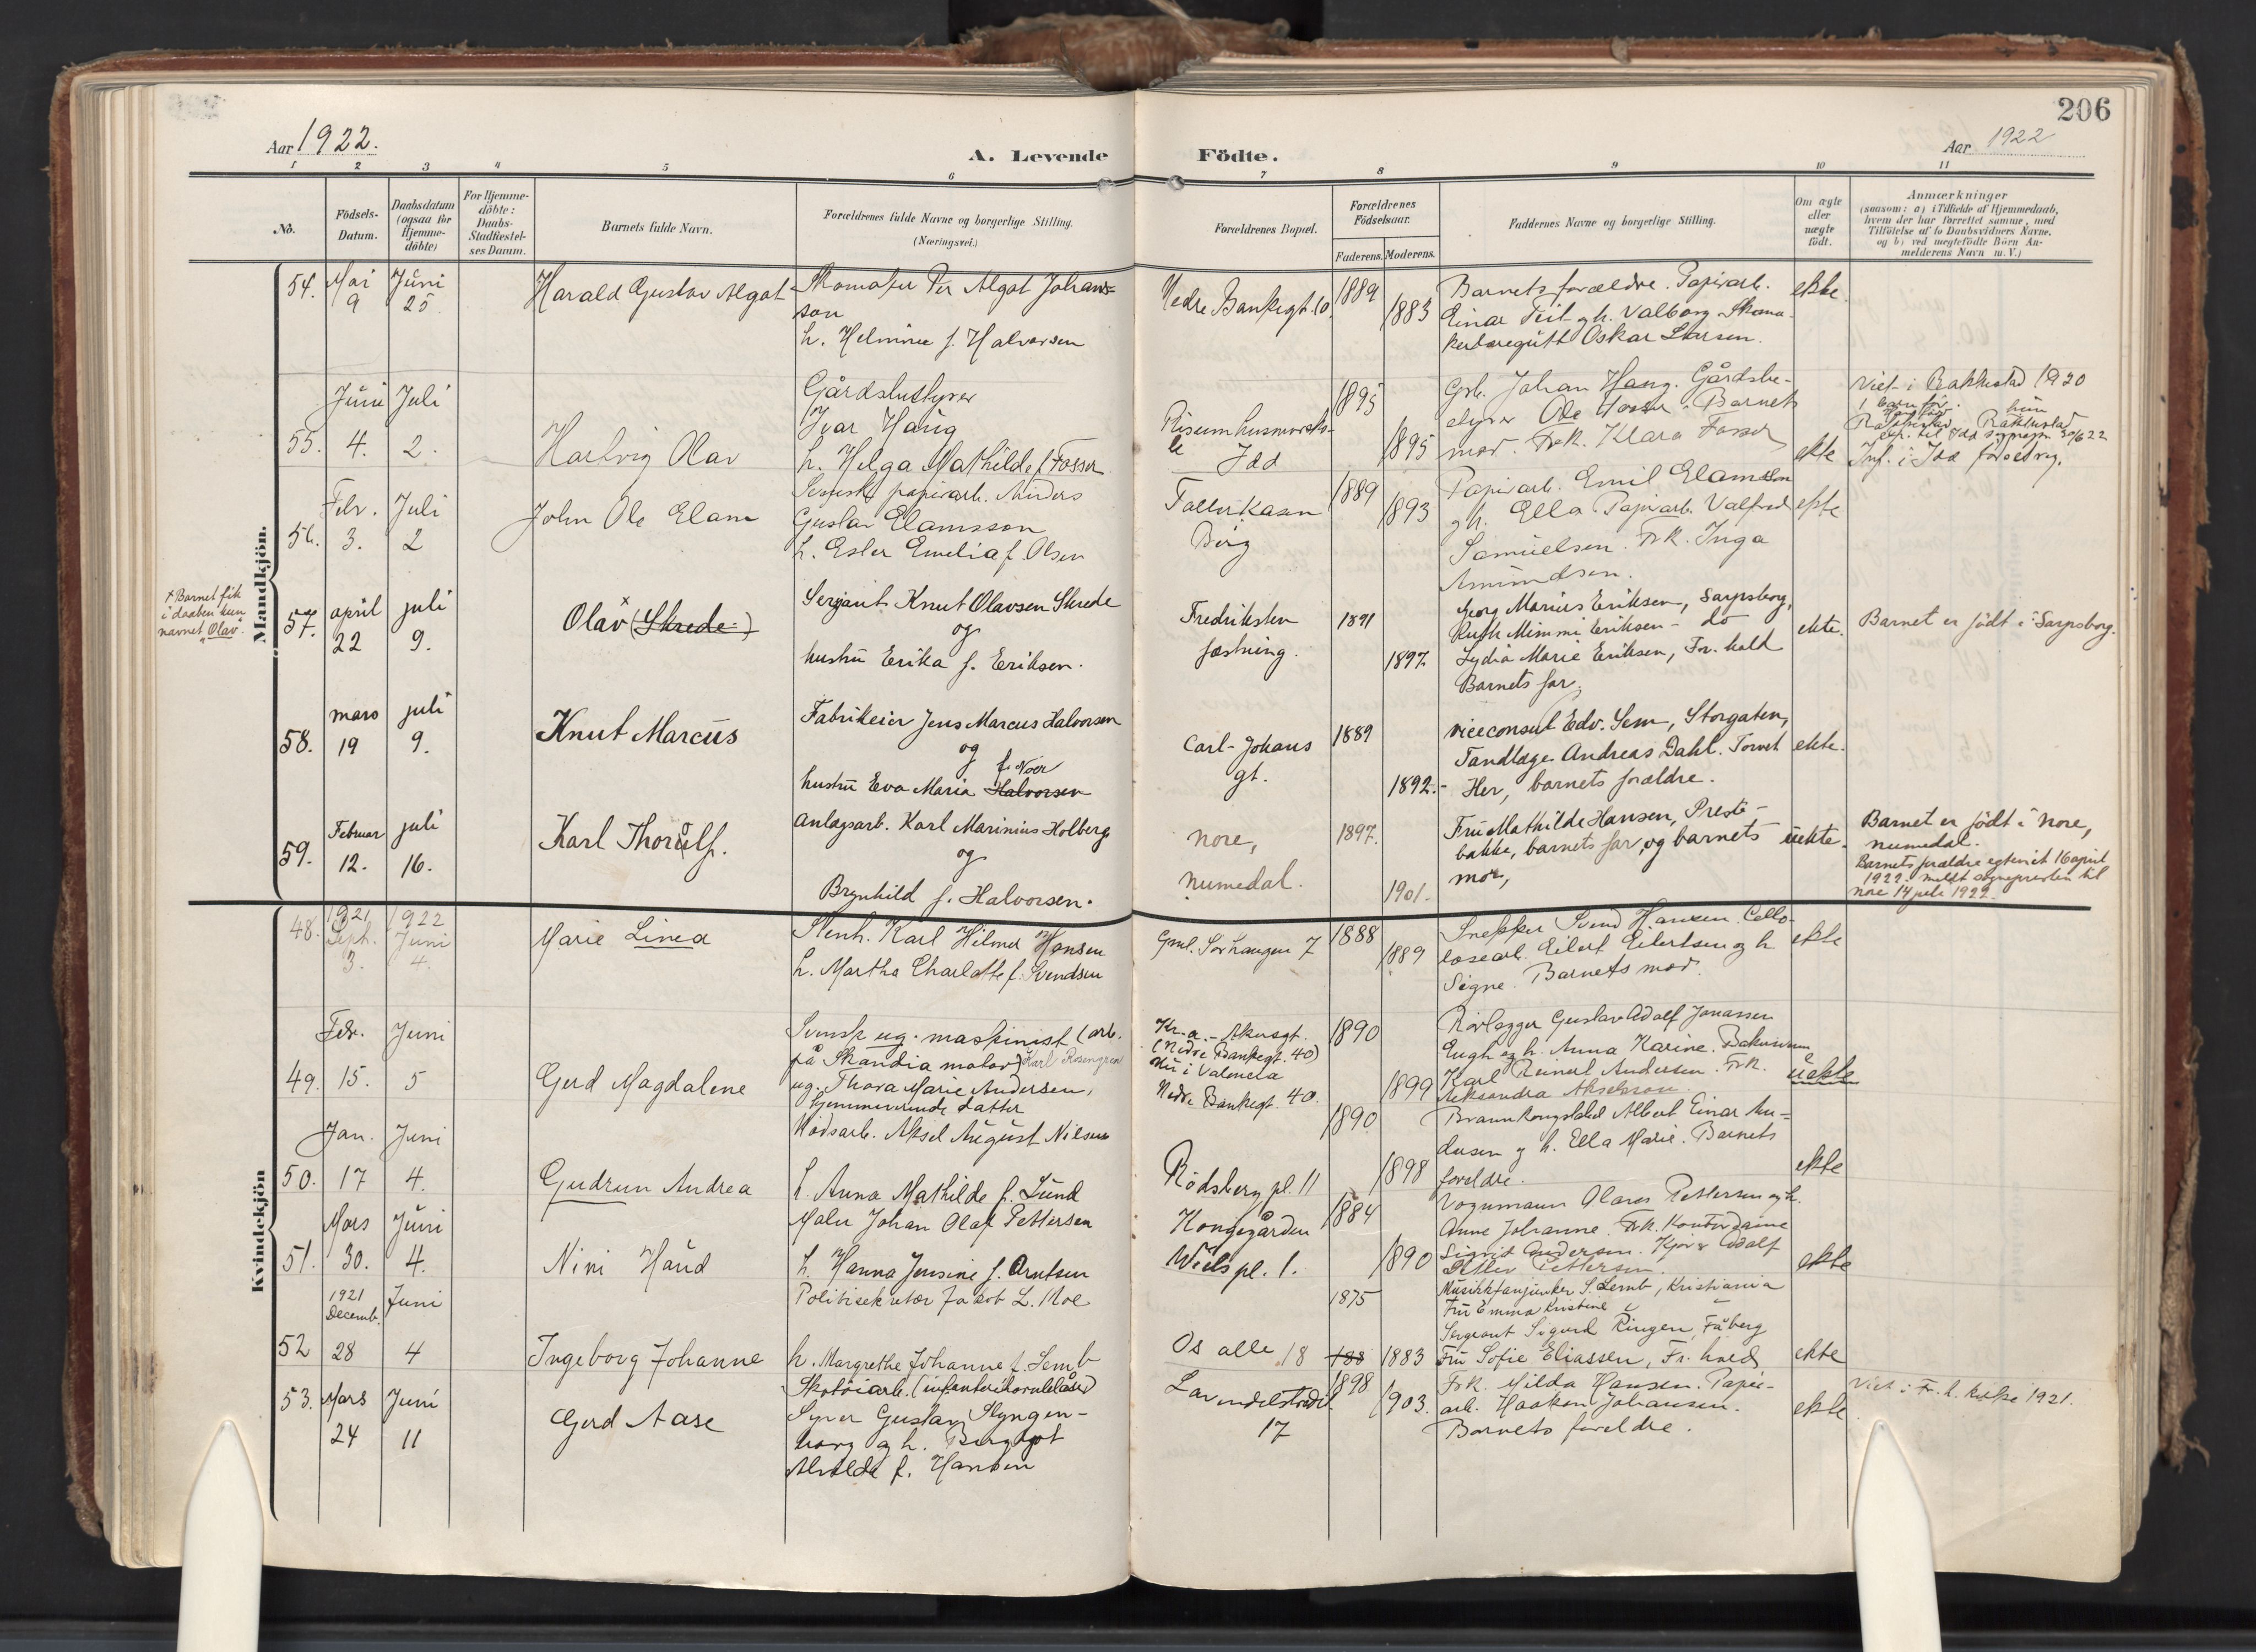 206
Aar 1922.
A. Levende Födte.
Aar 1922
1 2 3 4 5 6 7 8 9 10 11
No.
Födsels-Datum.
Daabsdatum (ogsaa for Hjemme-döbte)
For Hjemme-döbte: Daabs-Stadfæstel-ses Datum.
Barnets fulde Navn.
Forældrenes fulde Navne og borgerlige Stilling. (Næringsvei.)
Forældrenes Bopæl.
Forældrenes Födselsaar.
Faderens. Moderens.
Faddernes Navne og borgerlige Stilling.
Om ægte eller uægte födt.
Anmærkninger
(saasom: a) i Tilfælde af Hjemmedaab,
hvem der har forrettet samme, med
Tilföielse af to Daabsvidners Navne.
og b) ved uegtefödte Börn An-
melderens Navn m. V.)
Mandkjön.
54. Mai 9 Juni 25.
Harald Gustav Algot
Skomaker Per Algot Johans-
son
h. Helmine f. Halvorsen
Nedre Bankegt. 10.
1889
1883
Barnets forældre. Papirarb.
Einar Teit og h. Valborg. Skoma-
kerbæregutt Oskar Larsen.
ekte.
55. Juni 4. Juli 2.
Hartvig Olav
Gårdsbestyrer
Ivar Haug
h. Helga Mathilde f. Fosser
Idd
1895
1895
Grb. Johan Haug. Gårdsbe-
styrer Ole Fosser. Barnets
mor. Frk. Klara Fosser
ekte
Viet i Rakkestad 1920
1 barn før.
hun Rakkestad
Inf. i Idd forældreg.
56. Febr. 3. Juli 2
John Ole Elam
Svensk papirarb. Anders
Gustav Elamsson
h. Ester Emelia f. Olsen
Berg
1889
1893
Papirarb. Emil Elamsson
og h. Ella Papirarb. Valfred
Samuelsen. Frk. Inga
Amundsen.
ekte
x Barnet fik
i daaben kun
navnet "Olav".
57. april 22 juli 9.
Olav x (Skrede)
Serjant Knut Olavsen Skrede
og
hustru Erika f. Eriksen.
Fredriksten
fæstning.
1891
1897.
Georg Marius Eriksen, Sarpsborg,
Ruth Mimmi Eriksen - do
Lydia Marie Eriksen, Fr. hald
Barnets far.
ekte.
Barnet er födt i Sarpsborg.
58. mars 19 juli 9.
Knut Marcus
Fabrikeier Jens Marcus Halvorsen
og
f. Noer
hustru Eva Maria Halvorsen
Carl-Johans
gt.
1889
1892.-
viceconsul Edv. Sem, Storgaten,
Tandlæge Andreas Dahl. Torvet
Her, barnets forældre.
ekte.
59. Februar 12. juli 16.
Karl Thorulf.
Anlægsarb. Karl Marinius Holberg
og
Brynhild f. Halvorsen.
nore,
numedal.
1897.
1901.
Fru Mathilde Hansen, Preste-
bakke, barnets far, og barnets
mor,
uekte.
Barnet er födt i nore,
numedal.
Barnets forældre egteviet 16 april
1922. meldt sognepresten til
nore 14 juli 1922.
Kvindekjön
48. 1921 Sept. 3. 1922 Juni 4.
Marie Linea
Stenh. Karl Hilmer Hansen
h. Martha Charlotte f. Svendsen
Gml. Sørhaugen 7
1888
1889
Snekker Svend Hansen. Cello-
losearb. Eilert Eilertsen og h.
Signe. Barnets mor.
ekte
49. Febr. 15. Juni 5
Gerd Magdalene
Svensk ug. maskinist (arb.
på Skandia motor) Karl Rosengren
ug. Thora Marie Andersen,
hjemmeværende datter
Kr.a. - Akersgt.
(Nedre Bankegt. 40)
nu i Valencia
Nedre Bankegt. 40.
1890
1899
Rörlegger Gustav Adolf Jonassen
Engh og h. Anna Karine.
Karl Reinert Andersen. Frk.
Aleksandra Akselsson.
uekte
50. Jan. 17 Juni 4.
Gudrun Andrea
Aksel August Nilsen
h. Anna Mathilde f. Lund
Rödsberg pl. 11
1890
1898
Brannkonstabel Albert Einar An-
dersen og h. Ella Marie. Barnets
foreldre.
ekte
51. Mars 30. Juni 4.
Nini Haud
Maler Johan Olaf Pettersen
h. Hanna Jensine f. Arntsen
Kongegården
Wiels pl. 1.
1884
1890
Vognmann Olaves Pettersen og h.
Anne Johanne. Frk. Kontordame
Sigrid Andersen. Kjører Adolf
Pettersen.
ekte
52 1921 Decemb. 28 Juni 4
Ingeborg Johanne
Politisekretær Jakob L. Moe
h. Margrethe Johanne f. Lemb
Os alle 18
1875
188 1883
Musikkfanjunker S. Lemb, Kristiania
Fru Emma Kristine "
Sergeant Sigurd Ringen, Fåberg
Fru Sofie Eliassen, Fr. hald
ekte
53. Mars 24 Juni 11
Gerd Aase
Skotöiarb. (infanterihornblåser)
Syver Gustav Slyngen-
borg og h. Bergljot
Alvilde f. Hansen
Lavendelstrædet
17
1898
1903.
Frk. Milda Hansen. Papir-
arb. Haakon Johansen.
Barnets foreldre.
ekte
Viet i Fr. h. kirke 1921.